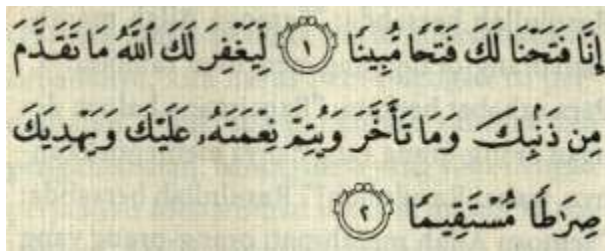 إِنَّا فَتَحْنَا لَكَ فَتْحًا مُّبِينًا ١ لِّيَغْفِرَ لَكَ ٱللَّهُ مَا تَقَدَّمَ
مِن ذَنۢبِكَ وَمَا تَأَخَّرَ وَيُتِمَّ نِعْمَتَهُۥ عَلَيْكَ وَيَهْدِيَكَ
صِرَٰطًا مُّسْتَقِيمًا ٢